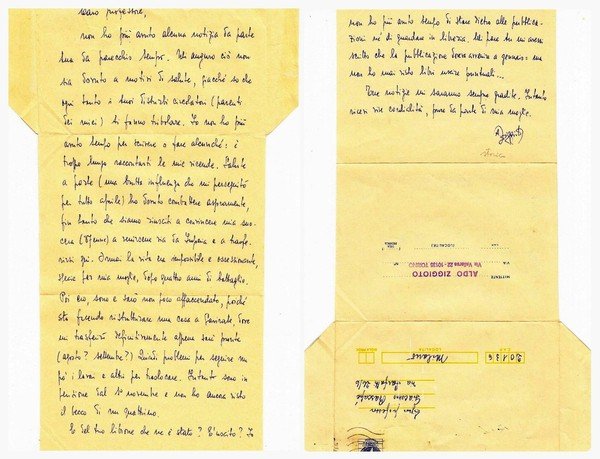 caro professore,
non ho più avuto alcuna notizia da parte
tua da parecchio tempo. Mi auguro ciò non
sia dovuto a motivi di salute, giacché so che
ogni tanto i tuoi disturbi circolatori (parenti
dei miei) ti fanno tribolare. Io non ho più
avuto tempo per scrivere o fare alcunché: è
troppo lungo raccontarti le mie vicende. Salute
a parte (una brutta influenza che mi perseguitò
per tutto aprile) ho dovuto combattere aspramente,
fin tanto che siamo riusciti a convincere mia suo-
cera (87enne) a venircene via da Imperia e a trasfe-
rirsi qui. Ormai la vita era impossibile e ossessionante,
specie per mia moglie, dopo quattro anni di battaglie.
Poi ero, sono e sarò non poco affaccendato, poiché
sto facendo ristrutturare una casa a
mi trasferirò definitivamente appena sarà pronta
(agosto? settembre?) Quindi problemi per seguire un
pò i lavori e altri per traslocare. Intanto sono in
pensione dal 1° novembre e non ho ancora visto
il becco di un quattrino.
E del tuo librone che ne è stato? E' uscito? Io
non ho più avuto tempo di stare dietro alle pubblica-
zioni né di guardare in libreria. Mi pare tu mi avessi
scritto che la pubblicazione doveva avvenire a gennaio: ma
non ho mai visto libri uscire puntuali...
Tue notizie mi saranno sempre gradite. Intanto
ricevi vive cordialità, pure da parte di mia moglie.
MITTENTE
ALDO ZIGGIOTO
TORINO
20136
Milano
C.A.P.
LOCALITÀ